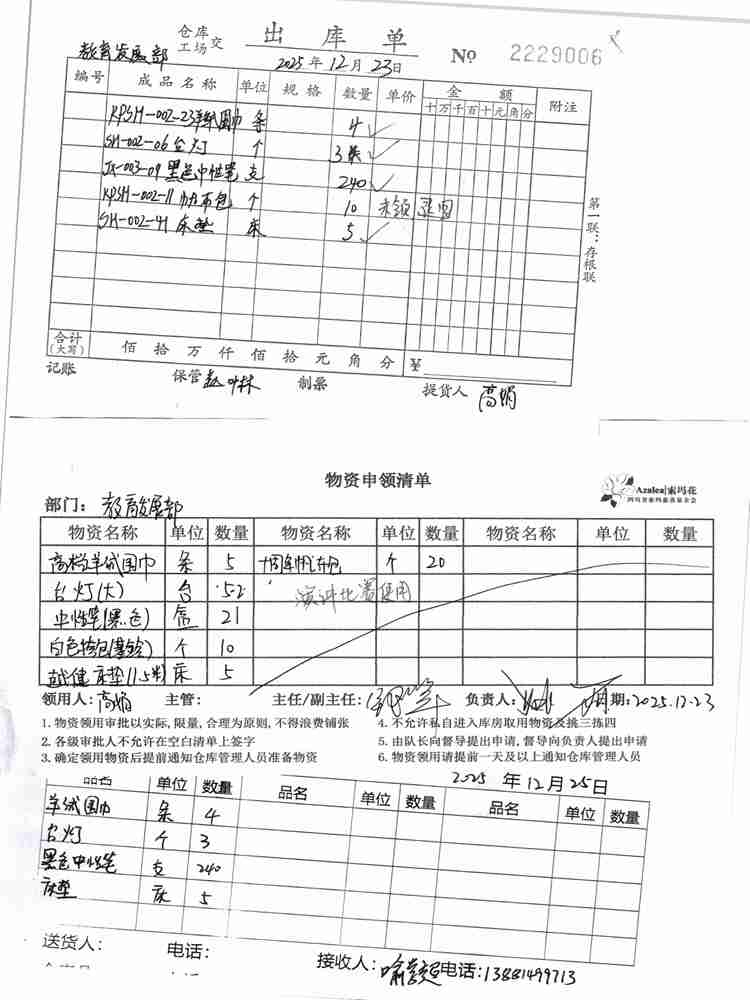 教育发展部
仓库
工场交
出库单
2025年12月23日
No 2229006
编号 成品名称 单位 规格 数量 单价 金额 附注
十万千百十元角分
KPSH-002-23羊绒围巾 条 4 ✓
SH-002-06台灯 个 3 ✓
JX-003-09黑色中性笔 支 240 ✓
KPSH-002-11帆布包 个 10 未领
SH-002-41床垫 床 5 ✓
第一联：存根联
合计(大写) 佰拾万仟佰拾元角分 ¥
记账 保管 制票 提货人 高娟
物资申领清单
Azalea|索玛花
部门：教育发展部
物资名称 单位 数量 物资名称 单位 数量 物资名称 单位 数量
高档羊绒围巾 条 5 十周年帆布包 个 20
台灯(大) 台 演讲比赛使用
中性笔(黑色) 盒 21
白色挎包 个 10
床垫(1.5米) 床 5
领用人：高娟 主管： 主任/副主任： 负责人： 日期：2025.12.23
1.物资领用审批以实际,限量,合理为原则,不得浪费铺张
4.不允许私自进入库房取用物资及挑三拣四
2.各级审批人不允许在空白清单上签字
5.由队长向督导提出申请,督导向负责人提出申请
3.确定领用物资后提前通知仓库管理人员准备物资
6.物资领用请提前一天及以上通知仓库管理人员
2025年12月25日
品名 单位 数量 品名 单位 数量 品名 单位 数量
羊绒围巾 条 4
台灯 个 3
黑色中性笔 支 240
床垫 床 5
送货人： 电话： 接收人： 电话：13881499713